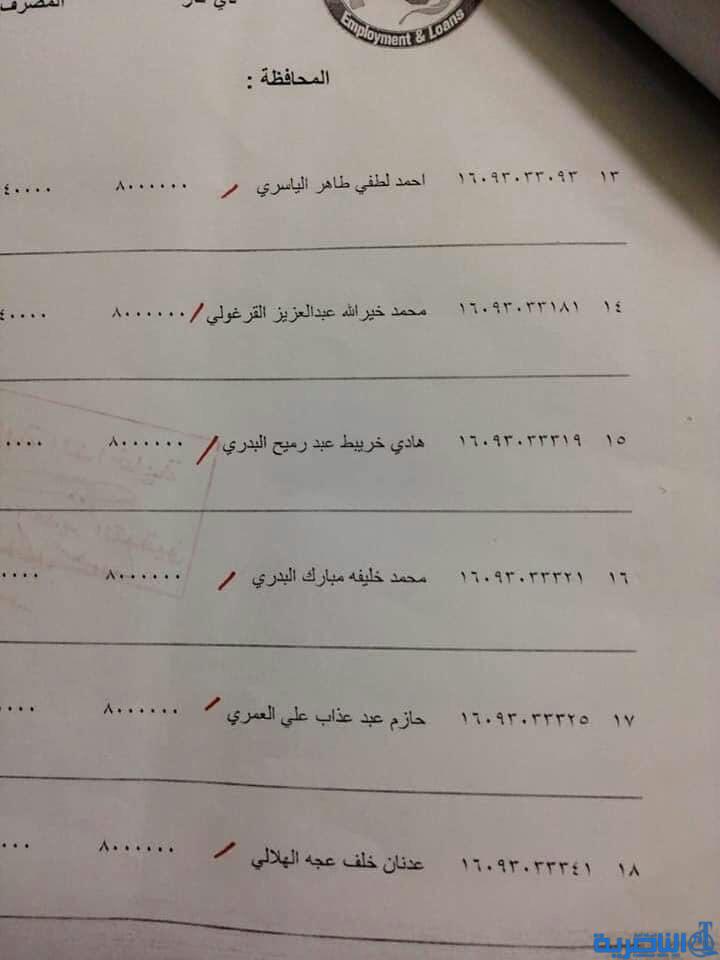 المصرف
Employment & Loans
المحافظة :
١٣ ١٦٠٩٣٠٣٣٠٩٣ احمد لطفي طاهر الياسري ٨٠٠٠٠٠٠ ٤٠٠٠٠
١٤ ١٦٠٩٣٠٣٣١٨١ محمد خيرالله عبدالعزيز القرغولي ٨٠٠٠٠٠٠ ٤٠٠٠٠
١٥ ١٦٠٩٣٠٣٣٣١٩ هادي خريبط عبد رميح البدري ٨٠٠٠٠٠٠ ٠٠٠٠
١٦ ١٦٠٩٣٠٣٣٣٢١ محمد خليفه مبارك البدري ٨٠٠٠٠٠٠ ٠٠٠٠
١٧ ١٦٠٩٣٠٣٣٣٢٥ حازم عبد عذاب علي العمري ٨٠٠٠٠٠٠ ٠٠٠٠
١٨ ١٦٠٩٣٠٣٣٣٤١ عدنان خلف عجه الهلالي ٨٠٠٠٠٠٠ ٠٠٠
الناصرية